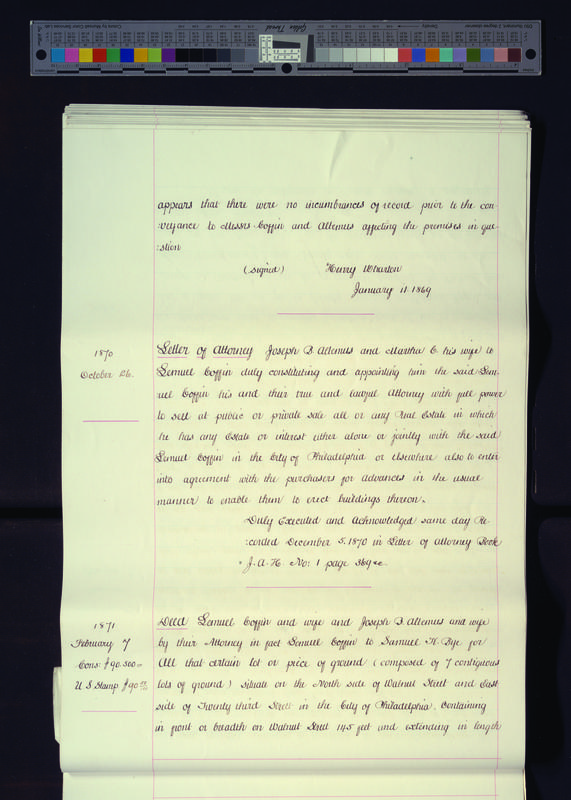 Golden Thread
appears that there were no incumbrances of record prior to the con-
:veyance to Messrs Coffin and Altemus affecting the premises in que
:stion
(signed) Henry Wharton
January 11 1869
1870
October 26.
Letter of Attorney Joseph B. Altemus and Martha C. his wife to
Lemuel Coffin duly constituting and appointing him the said Lem-
uel Coffin his and their true and lawful Attorney with full power
to sell at public or private sale all or any Real Estate in which
he has any Estate or interest either alone or jointly with the said
Lemuel Coffin in the City of Philadelphia or elsewhere also to enter
into agreement with the purchasers for advances in the usual
manner to enable them to erect buildings thereon.
Duly Executed and Acknowledged same day Re-
:corded December 5. 1870 in Letter of Attorney Book
J. A. H. No: 1 page 369 &c.
1871
February 7
Cons: $90.500
U S Stamp $90
Deed Lemuel Coffin and wife and Joseph B. Altemus and wife
by their Attorney in fact Lemuel Coffin to Samuel H. Bye for
All that certain lot or piece of ground (composed of 7 contiguous
lots of ground) situate on the North side of Walnut Street and East
side of Twenty third Street in the City of Philadelphia. Containing
in front or breadth on Walnut Street 145 feet and extending in length